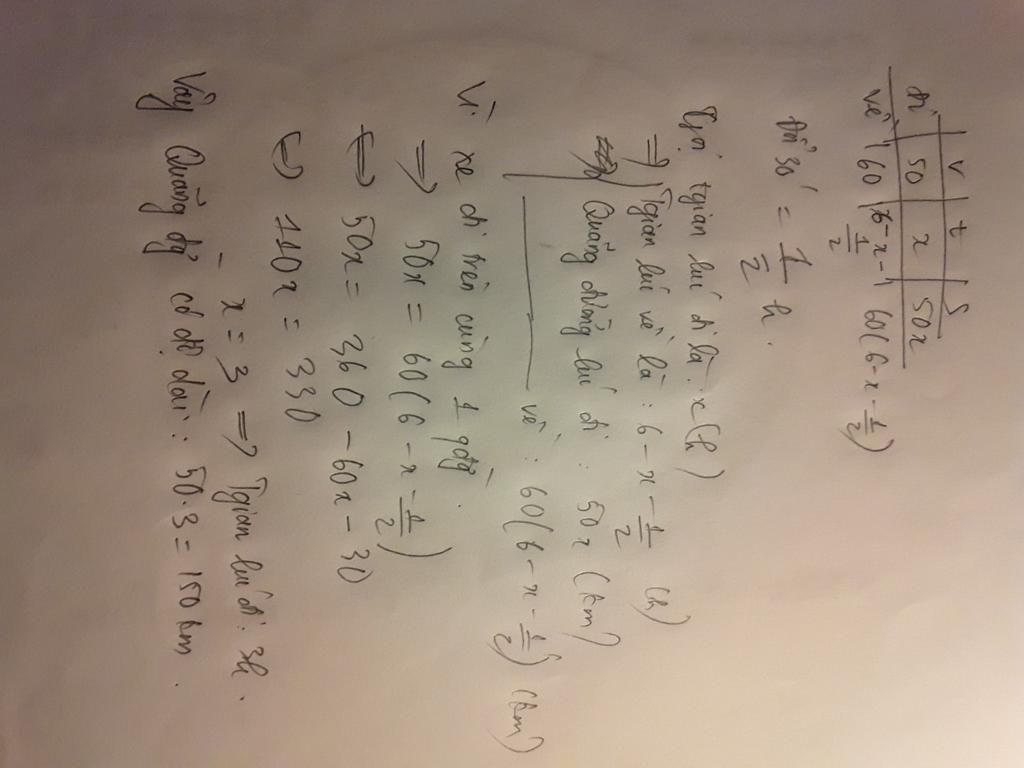 v t S
đi 50 x 50x
về 60 6-x-1/2 60(6-x-1/2)
= 1/2 h.
Gọi tgian lúc đi là: x(h)
=> Tgian lúc về là: 6-x-1/2 (h)
Quãng đường lúc đi: 50x (km)
về: 60(6-x-1/2) (km)
Vì xe đi trên cùng 1 qđg.
=> 50x = 60(6-x-1/2)
<=> 50x = 360-60x-30
<=> 110x = 330
x=3 => Tgian lúc đi: 3h.
Vậy Quãng đg có độ dài: 50.3=150km.